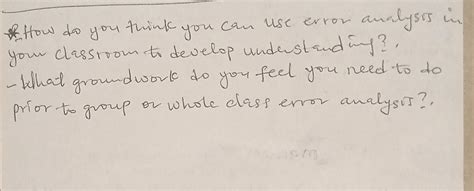 * How do you think you can use error analysis in
your classroom to develop understanding?.
- What groundwork do you feel you need to do
prior to group or whole class error analysis?.